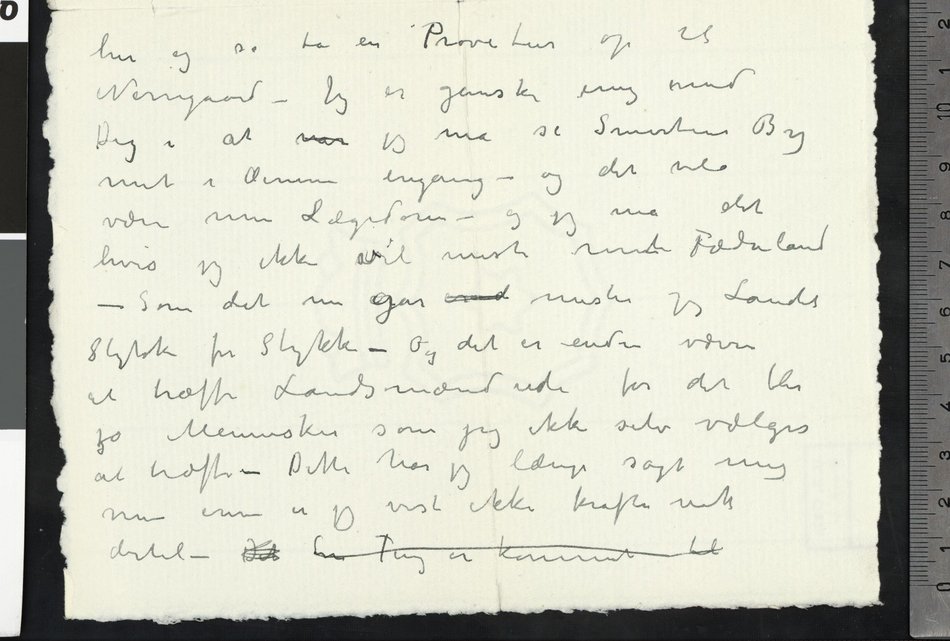 her og så ta en Prøvetur op til
Nerregaard – Jeg er ganske enig med
Dig i at når jeg må se Smertens By
midt i Øinene engang – og det vil
være min Lægedom – og jeg må det
hvis jeg ikke vil miste mit Fædreland
– Som det nu går mister jeg Landet
Stykke for Stykke – Og det er endnu værre
at træffe Landsmænd ude for det blir
jo Mennesker som jeg ikke selv vælger
at træffe – Dette har jeg længe sagt mig
men ennu er jeg vist ikke kraftig nok
dertil – Det En Ting er kommet til